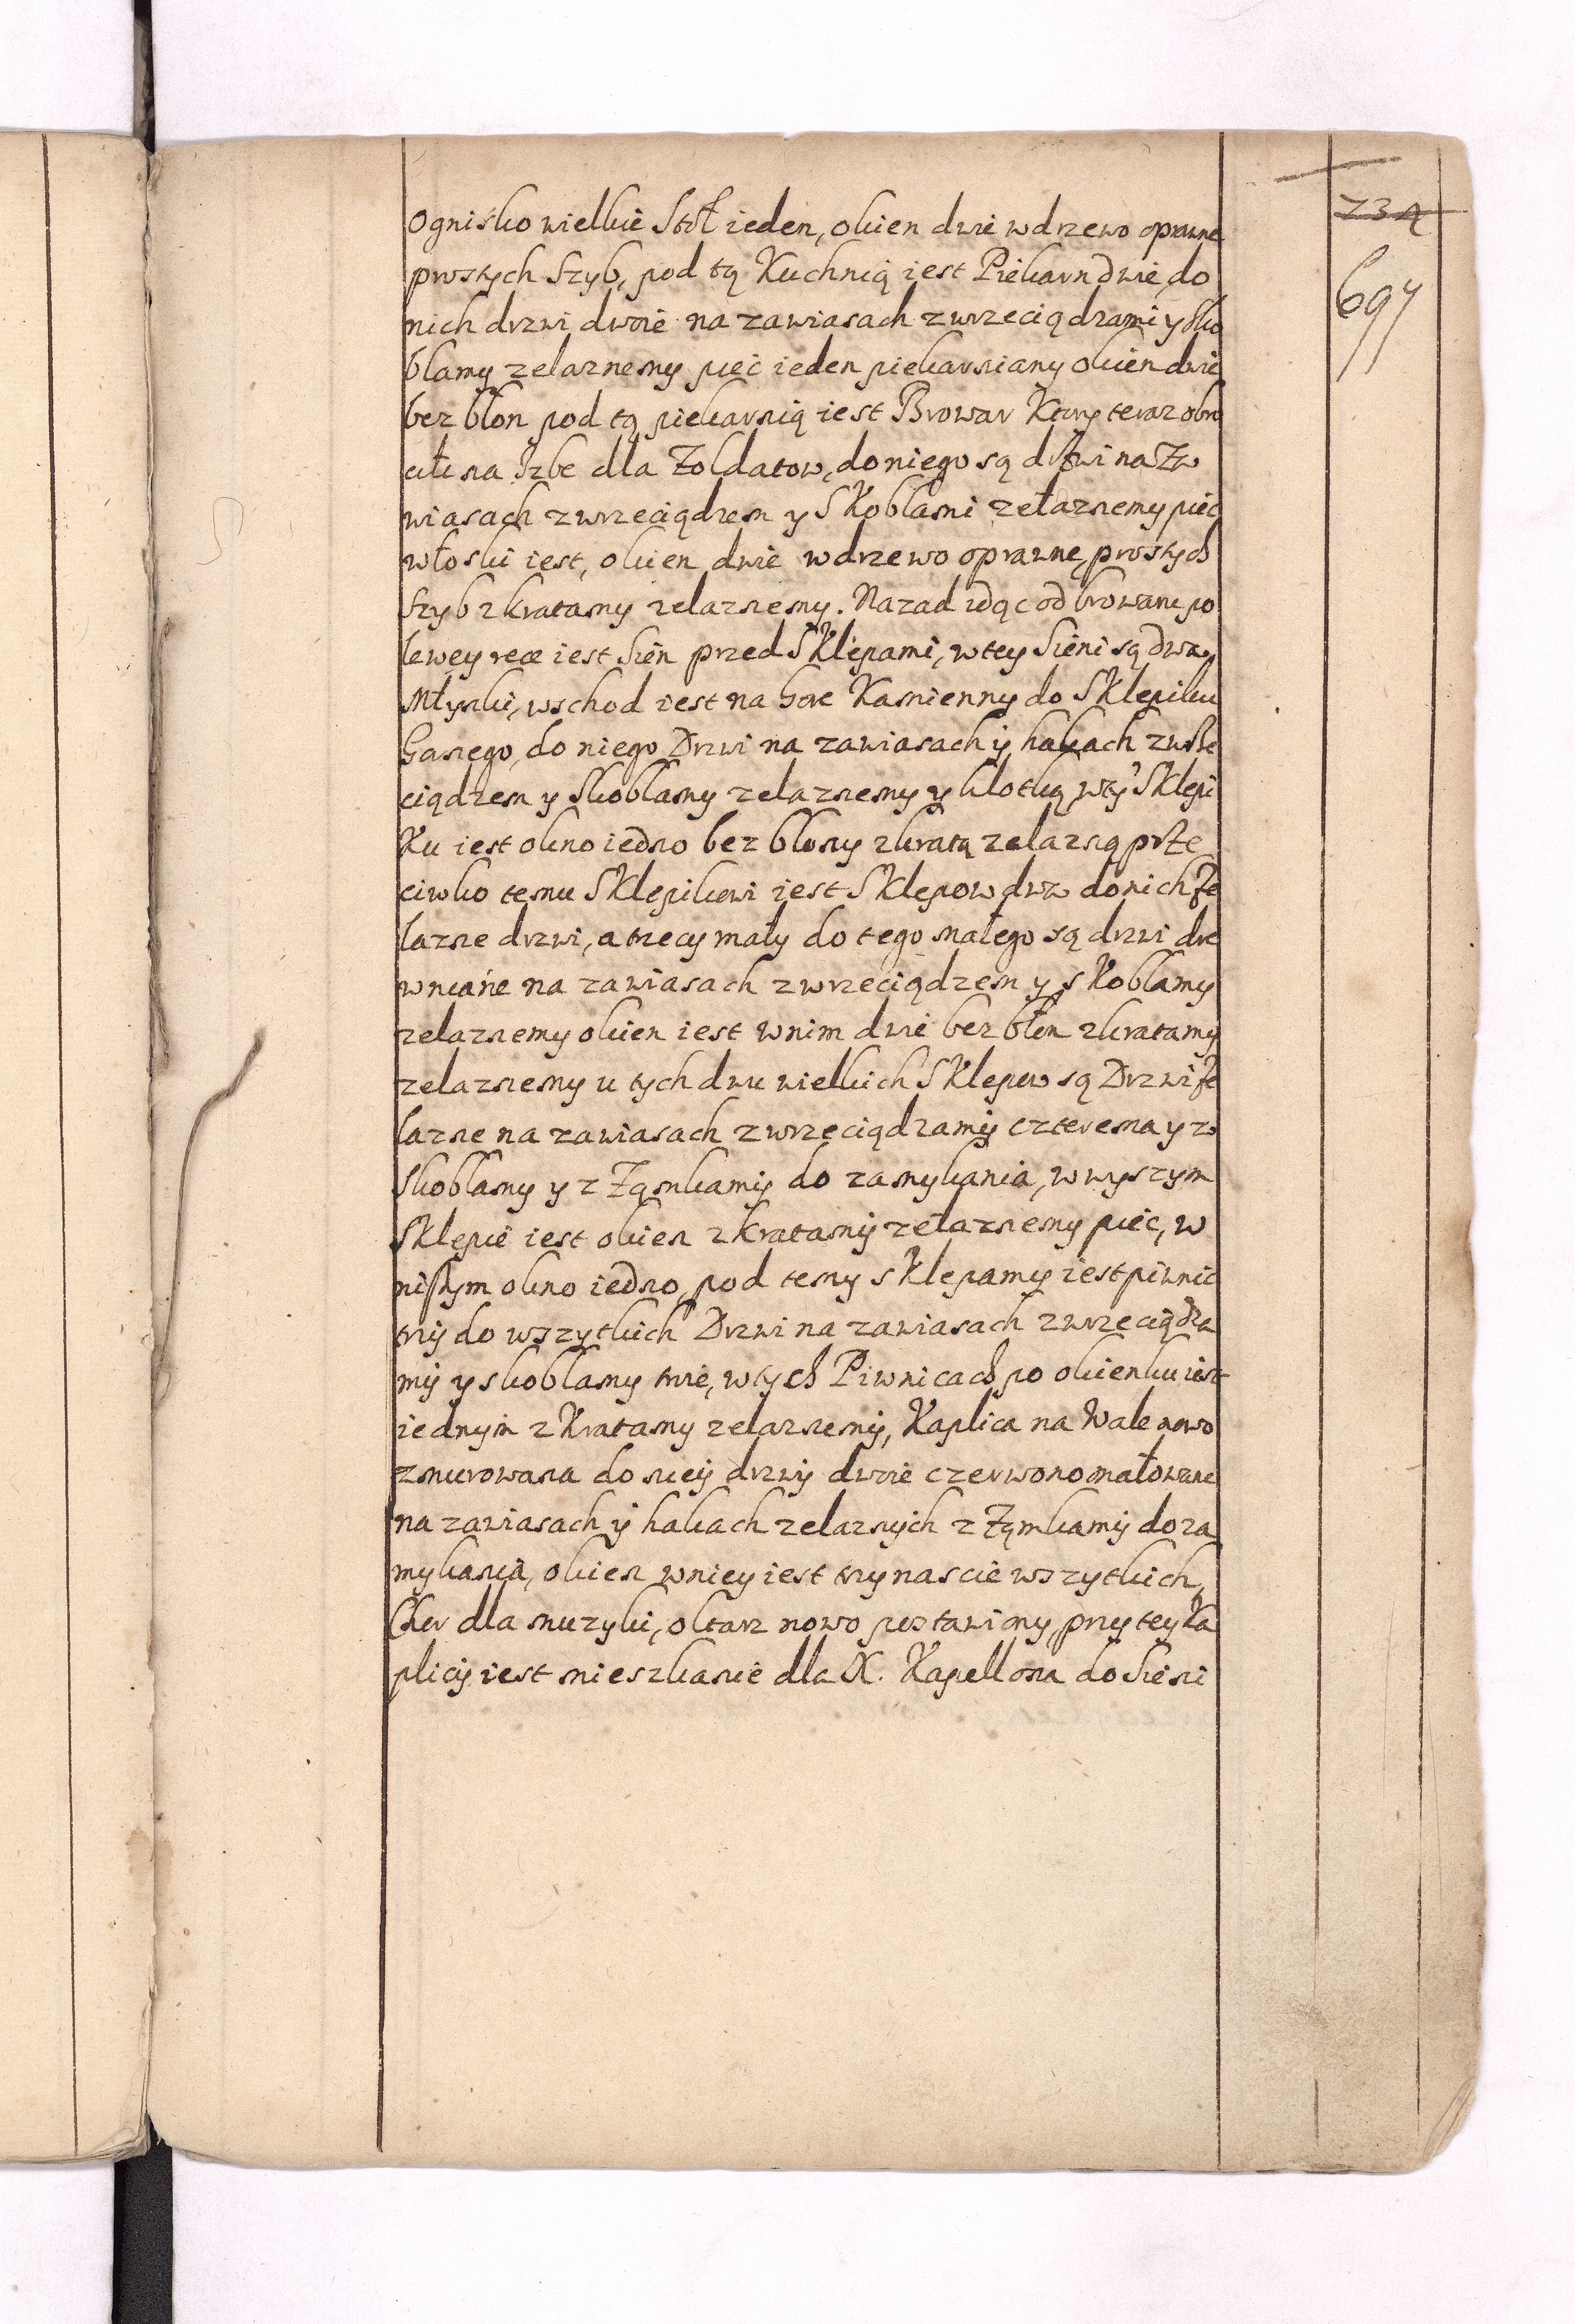 234
697
Ognisko wielkie Stół ieden, okien dwie w drzewo oprawne
prostych Szyb, pod tą Kuchnią iest Piekarn dwie, do
nich drzwi dwoie na zawiasach z wrzeciądzami y sko
blamy zelaznemy piec ieden piekarniany okien dwie
bez błon pod tą piekarnią iest Browar Ktory teraz obro
cili na Izbe dla Zoldatow, do niego są drzwi na Za
wiasach z wrzeciądzem y Skoblami zelaznemy piec
włoski iest, okien dwie w drzewo oprawne, prostych
Szyb z kratamy zelaznemy. Nazad idąc od browaru po
lewey rece iest Sien przed Sklepami, w tey Sieni są dwa
Młynki, wschod iest na Gore Kamienny do Sklepiku
Gornego, do niego Drzwi na zawiasach ÿ hakach z wrze
ciądzem y Skoblamy zelaznemy y klotką, w tÿ Sklepi
Ku iest okno iedno bez błony z kratą zelazną prze
ciwko temu Sklepikowi iest Sklepow dwa do nich Ze
lazne drzwi, a trzecy mały do tego małego są drzwi dre
wniane na zawiasach z wrzeciądzem y skoblamy
zelaznemy okien iest w nim dwie bez błon z kratamy
zelaznemy u tych dwu wielkich Sklepow są Drzwi Ze
lazne na zawiasach z wrzeciądzamÿ czterema y z
Skoblamy y z Ząmkamÿ do zamykania, w wyszym
Sklepie iest okien z kratamÿ zelaznemy piec, w
niszym okno iedno, pod temy sklepamy iest piwnic
trzÿ do wszytkich Drzwi na zawiasach z wrzeciądza
mÿ y skoblamy troie, w tych Piwnicach po okienku iest
iednym z Kratamy zelaznemÿ, Kaplica na Wale nowo
zmurowana do nieÿ drzwÿ dwoie czerwono małowane
na zawiasach ÿ hakach zelaznÿch z Ząmkamÿ do za
mykania, okien w niey iest trzynascie wszytkich,
Chor dla muzyki, oltarz nowo postawiony, przy tey Ka
plicÿ iest mieszkanie dla X. Kapellona do Sieni